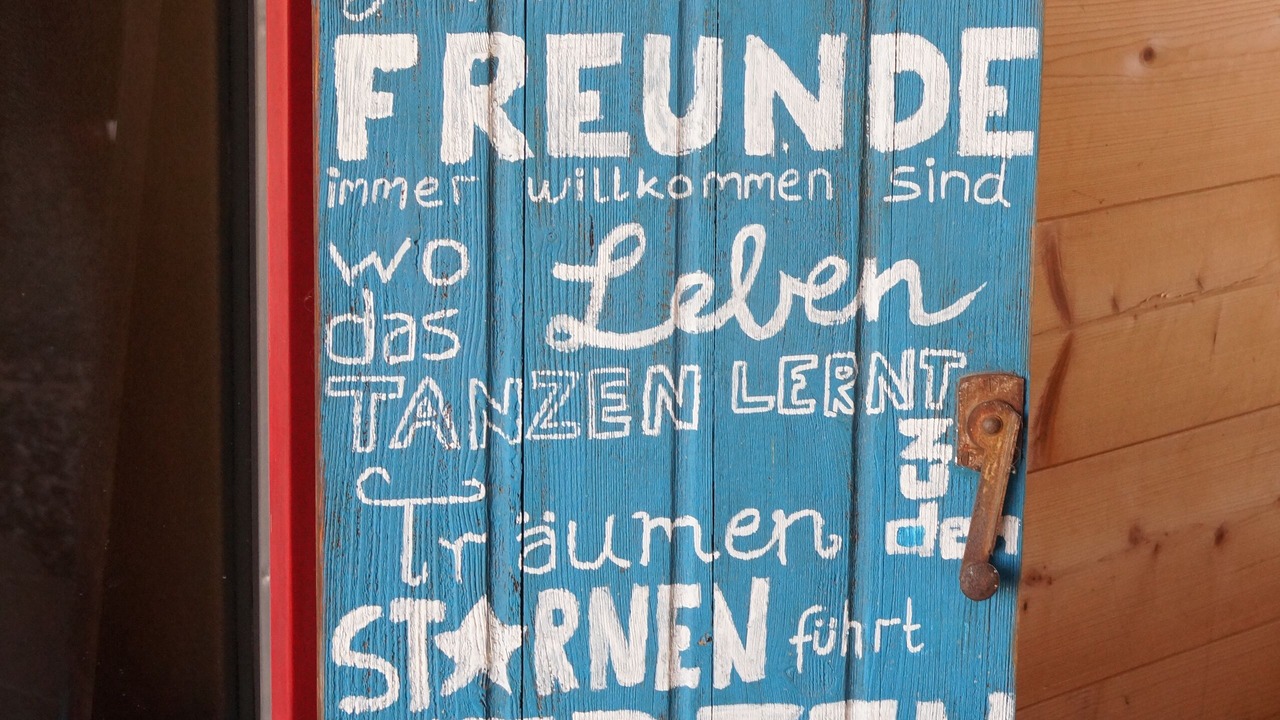 FREUNDE
immer willkommen sind
wo
das Leben
TANZEN LERNT
Träumen
zu
den
ST★RNEN führt